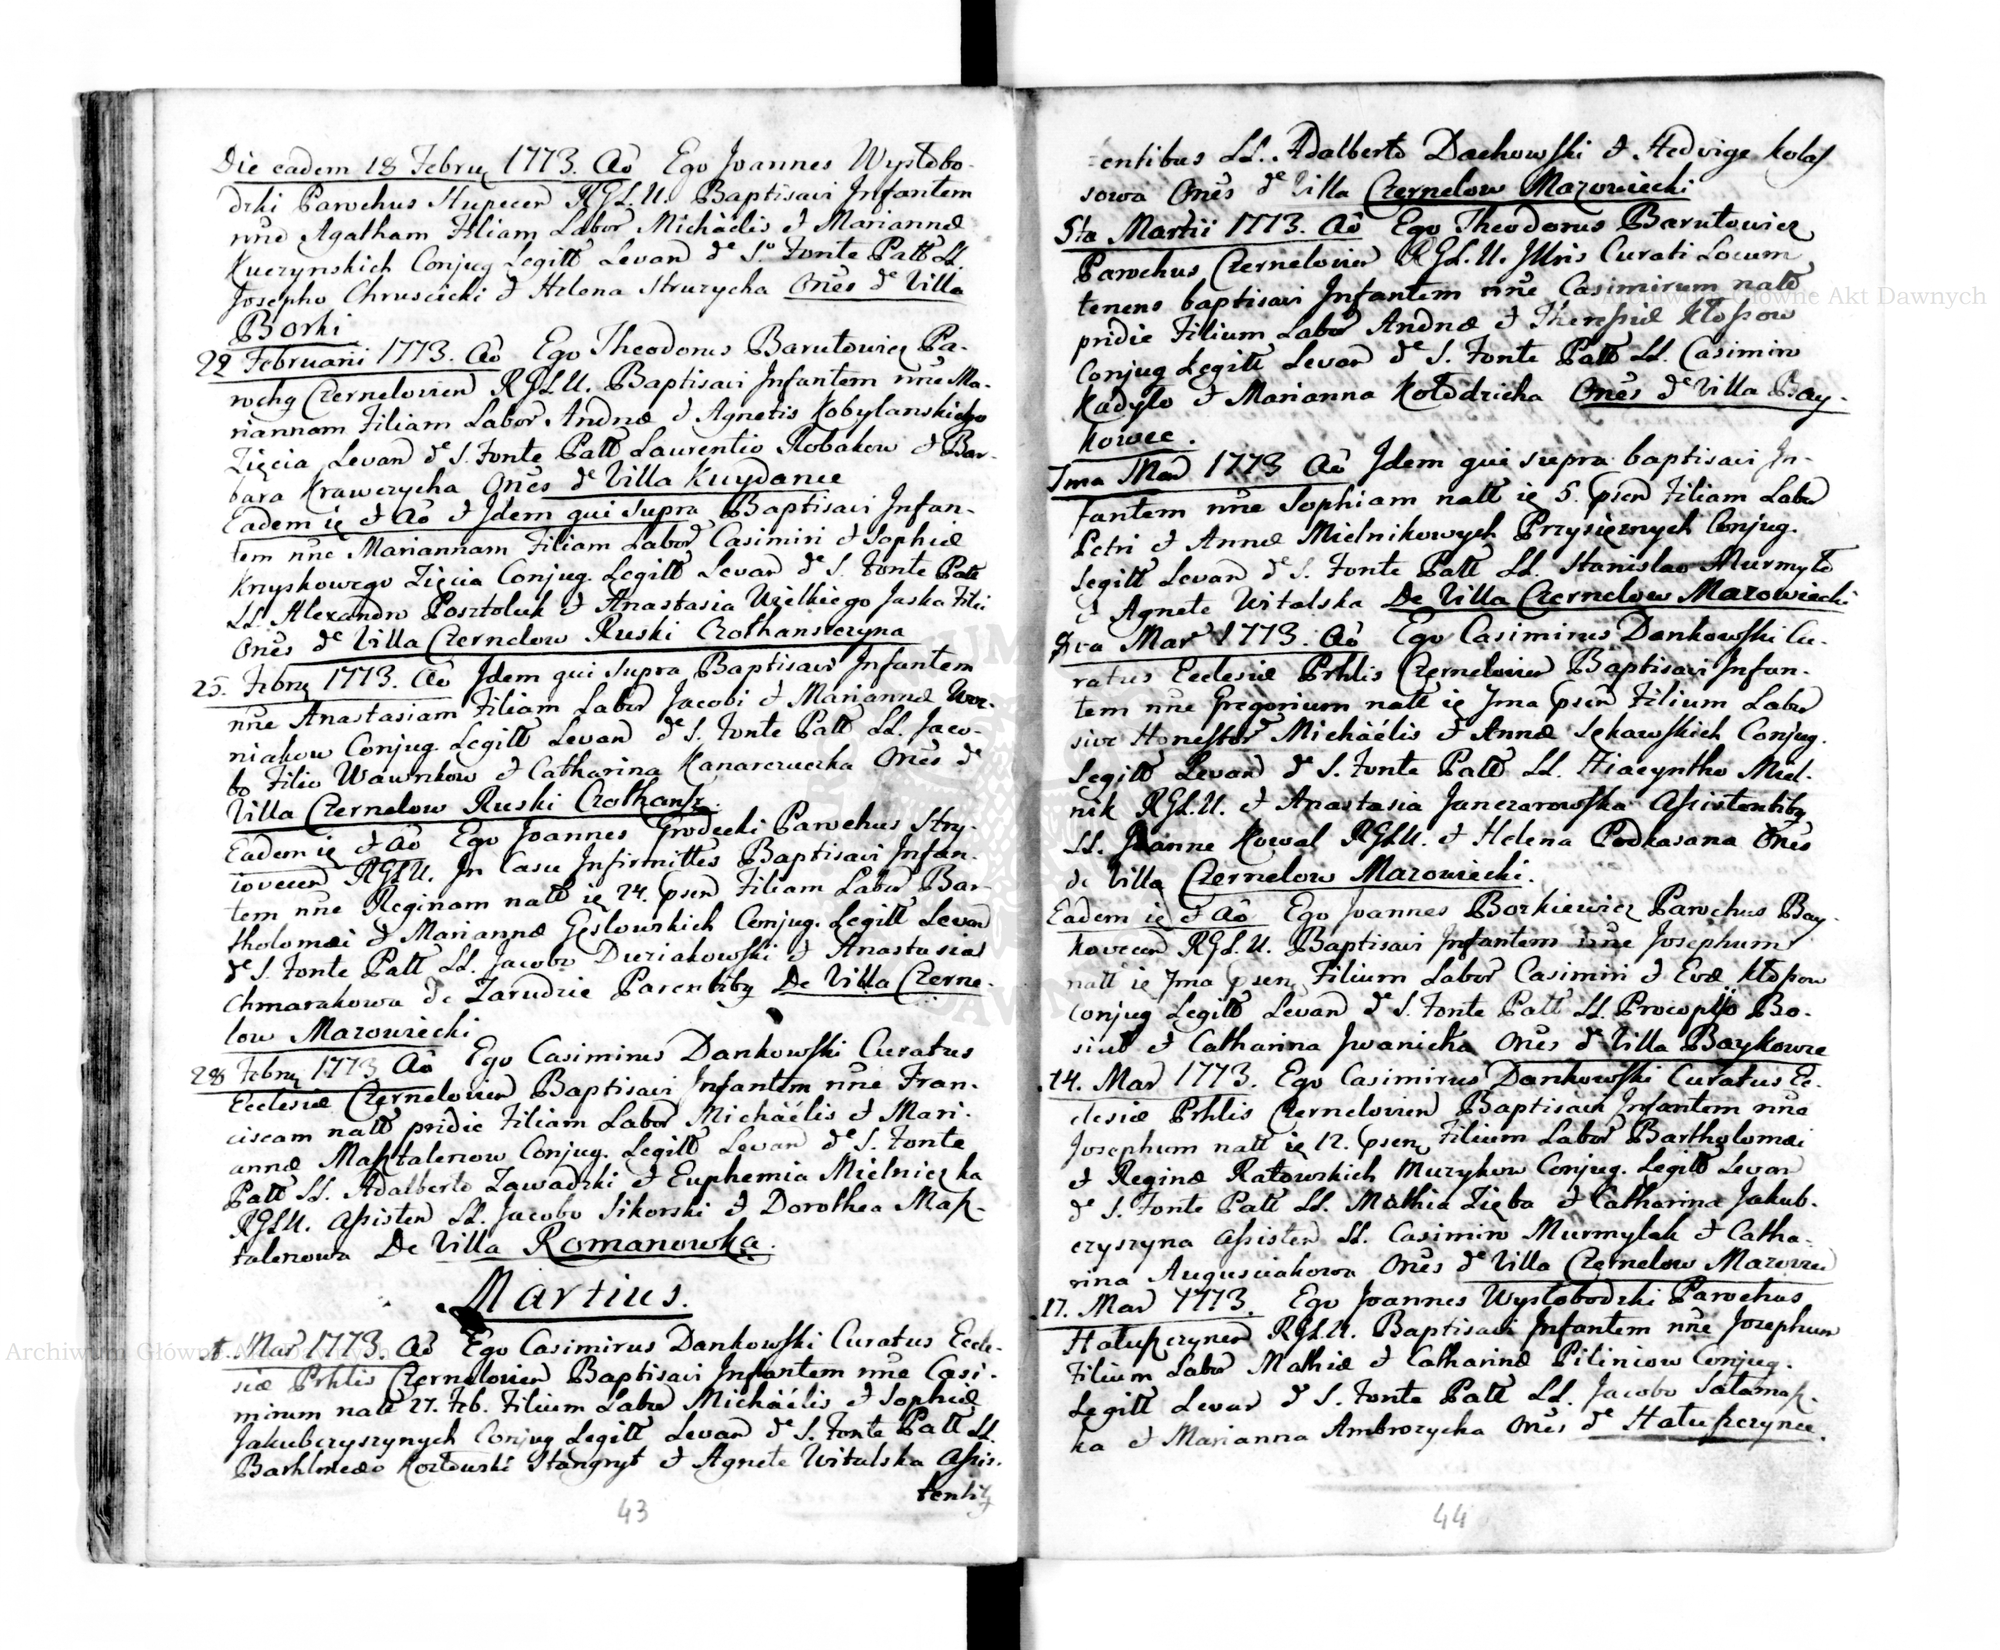 Die eadem 18 Febru 1773. Aō Ego Joannes Wysłobo-
dzki Parochus Stupecen RGL.U. Baptisavi Infantem
nn̄e Agatham Filiam Labor Michaëlis et Mariannæ
Kuczynskich Conjug Legitt Levan de S. Fonte Patt LL.
Josepho Chruscicki et Helena Struzycha On̄es de Villa
Borki
22 Februarii 1773. Aō Ego Theodorus Barutowicz Pa-
rochg Czernelovien RGLU. Baptisavi Infantem nn̄e Ma-
riannam Filiam Labor Andræ et Agnetis Kobylanskiego
Zięcia Levan de S. Fonte Patt Laurentio Robakow et Bar-
bara Krawczycha On̄es de Villa Kuydance
Eadem ie et Aō et Idem qui supra Baptisavi Infan-
tem nn̄e Mariannam Filiam Labor Casimiri et Sophiæ
Kryskowego Zięcia Conjug. Legitt Levan de S. Fonte Patt
LL. Alexandro Posztoluk et Anastasia Wielkiego Jaska Filii
On̄es de Villa Czernelow Ruski Czolhanszczyna
25. Febru 1773. Aō Idem qui Supra Baptisavi Infantem
nn̄e Anastasiam Filiam Labor Jacobi et Mariannæ Wor-
niakow Conjug. Legitt Levan de S. Fonte Patt LL. Jaco-
bo Filio Wawrkow et Catharina Kanarczuczka On̄es de
Villa Czernelow Ruski Czolhansz.
Eadem ie et Aō Ego Joannes Grodecki Parochus Stry-
iovecen RGLU. In Casu Infirmittes Baptisavi Infan-
tem nn̄e Reginam natt ie 24. psen Filiam Labor Bar-
tholomæi et Mariannæ Gęslowskich Conjug. Legitt Levan
de S. Fonte Patt LL. Jacobo Duriakowski et Anastasia
Chmarakowa de Zarudzie Parentibg De Villa Czerne-
low Mazowiecki
28 Febru 1773 Aō Ego Casimirus Dankowski Curatus
Ecclesiæ Czernelovien Baptisavi Infantem nn̄e Fran-
ciscam natt pridie Filiam Labor Michaëlis et Mari-
annæ Masztalerzow Conjug. Legitt Levan de S. Fonte
Patt LL. Adalberto Zawadzki et Euphemia Mielniczka
RGLU. Assisten LL. Jacobo Sikorski et Dorothea Masz-
talerzowa De Villa Romanowka.
Martius.
1. Mar 1773. Aō Ego Casimirus Dankowski Curatus Eccle-
siæ Prhlis Czernelovien Baptisavi Infantem nn̄e Casi-
mirum natt 27. Feb. Filium Labor Michaëlis et Sophiæ
Jakubczyszynych Conjug Legitt Levan de S. Fonte Patt LL.
Barhlmæo Kozłowski Stangryt et Agnete Witulska Assis-
tentibg
43
entibus LL. Adalberto Dachowski et Hedvige Kolas
sowa On̄es de Villa Czernelow Mazowiecki
5ta Martii 1773. Aō Ego Theodorus Barutowicz
Parochus Czernelovien RGL.U. Illris Curati Locum
tenens baptisavi Infantem nn̄e Casimirum natt
pridie Filium Labor Andræ et Theresiæ Kłosow
Conjug Legitt Levan de S. Fonte Patt LL. Casimiro
Kadyło et Marianna Kołodzicha On̄es de Villa Bay-
kowce.
7ma Mar 1773 Aō Idem qui supra baptisavi In-
fantem nn̄e Sophiam natt ie 5. psen Filiam Labor
Petri et Annæ Mielnikowych Przysięznych Conjug.
Legitt Levan de S. Fonte Patt LL. Stanislao Murmyło
et Agnete Witalska De Villa Czernelow Mazowiecki
8va Mar 1773. Aō Ego Casimirus Dankowski Cu-
ratus Ecclesiæ Prhlis Czernelovien Baptisavi Infan-
tem nn̄e Gregorium natt ie 7ma psen Filium Labor
sive Honestor Michaélis et Annæ Sękawskich Conjug.
Legitt Levan de S. Fonte Patt LL. Hiacyntho Miel-
nik RGL.U. et Anastasia Janczarowska Assistentibg
LL. Joanne Kowal RGLU. et Helena Podkasana On̄es
de Villa Czernelow Mazowiecki.
Eadem ie et Aō Ego Joannes Borkiewicz Parochus Bay-
kovecen RGL.U. Baptisavi Infantem nn̄e Josephum
natt ie 7ma psen Filium Labor Casimiri et Evæ Kłosow
Conjug Legitt Levan de S. Fonte Patt LL. Procopio Bo-
siut et Catharina Iwanicha On̄es de Villa Baykowce
14. Mar 1773. Ego Casimirus Dankowski Curatus Ec-
clesiæ Prhlis Czernelovien Baptisavi Infantem nn̄e
Josephum natt ie 12. psen Filium Labor Bartholomæi
et Reginæ Ratowskich Muzykow Conjug. Legitt Levan
de S. Fonte Patt LL. Mathia Zięba et Catharina Jakub-
czyszyna Assisten LL. Casimiro Murmylak et Catha-
rina Augusciakowa On̄es de Villa Czernelow Mazowie
17. Mar 1773. Ego Joannes Wysłobodzki Parochus
Hałuszczynen RGL.U. Baptisavi Infantem nn̄e Josephum
Filium Labor Mathiæ et Catharinæ Piliniow Conjug.
Legitt Levan de S. Fonte Patt LL. Jacobo Sałamasz-
ka et Marianna Ambrozycha On̄es de Hałuszczynce.
44
Archiwum Główne Akt Dawnych
Archiwum Główne Akt Dawnych